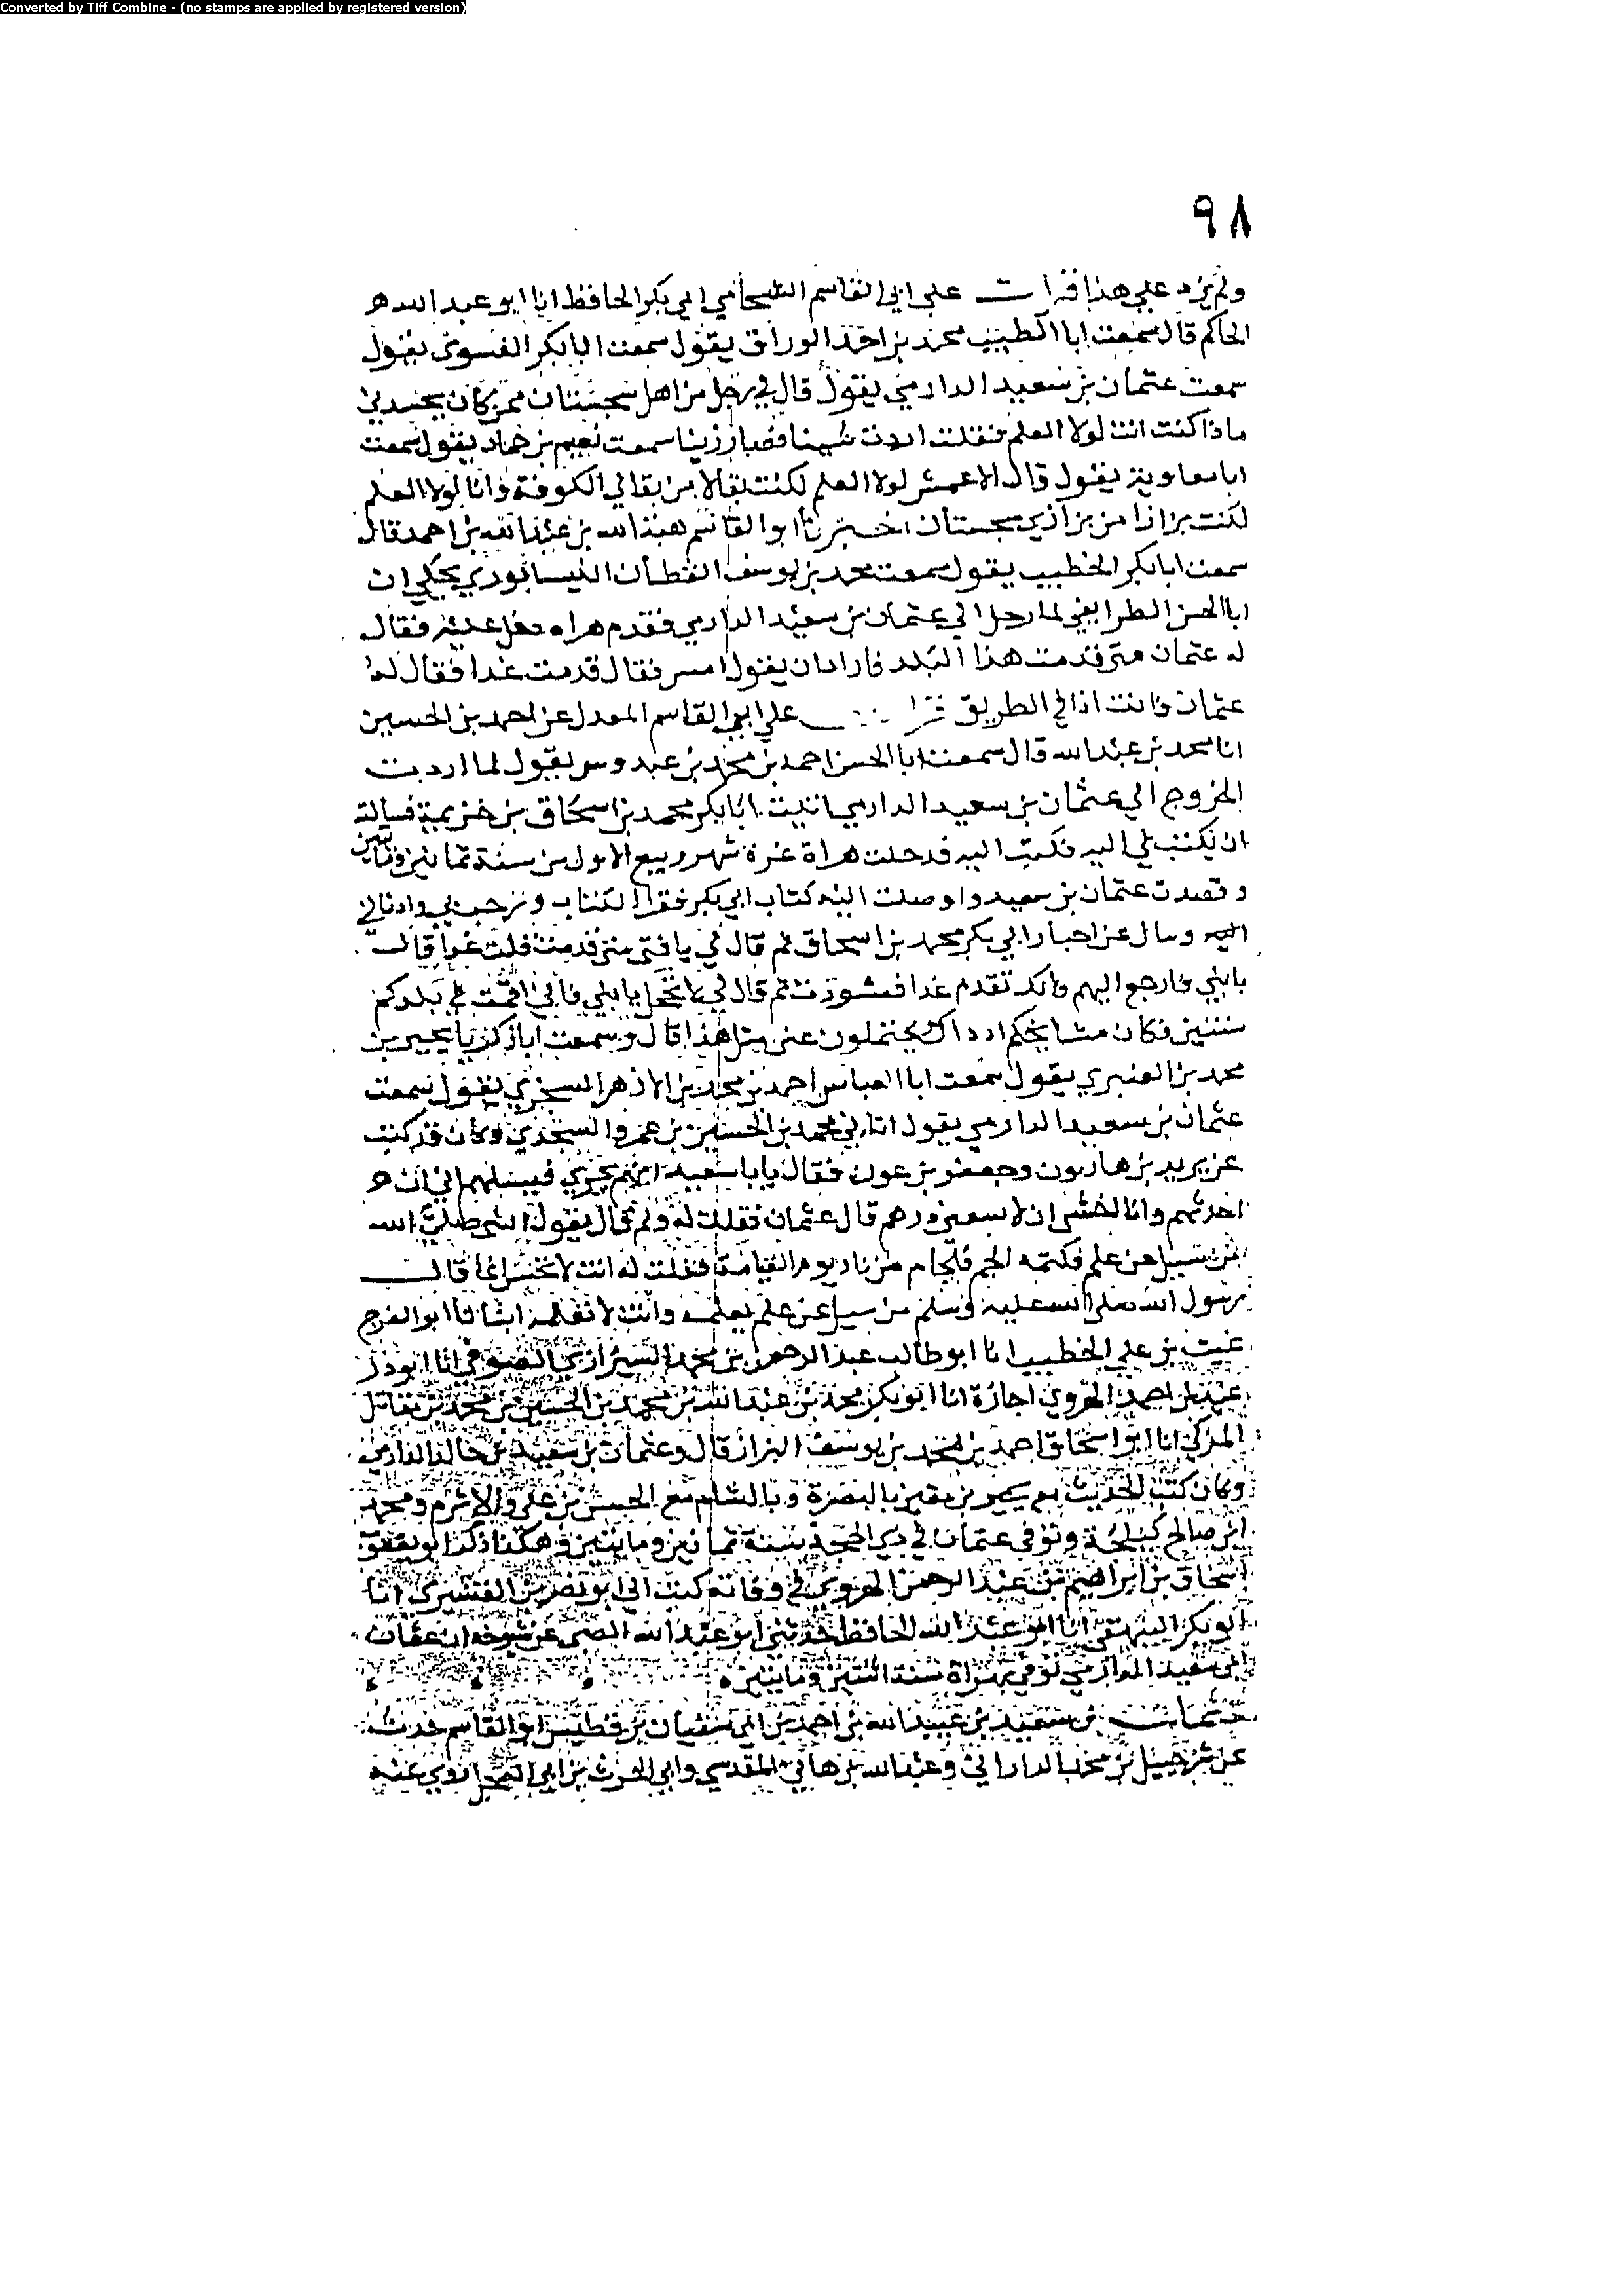 Converted by Tiff Combine - (no stamps are applied by registered version)
٩٨
ولم يزد علي هذا قرات علي ابي القاسم الشحامي ابي بكر الحافظ انا ابو عبد الله
الحاكم قال سمعت ابا الطيب محمد بن احمد الوراق يقول سمعت ابا بكر الفسوي يقول
سمعت عثمان بن سعيد الدارمي يقول قال لي رجل من اهل سجستان ممن كان يحسدني
ماذا كنت انت لولا العلم فقلت اردت شينا فصار زينا سمعت نعيم بن حماد يقول سمعت
ابا معاوية يقول قال الاعمش لولا العلم لكنت بقالا من بقالي الكوفة وانا لولا العلم
لكنت بزازا من بزازي سجستان اخبرنا ابو القاسم هبة الله بن عبد الله بن احمد قال
سمعت ابا بكر الخطيب يقول سمعت محمد بن يوسف القطان النيسابوري يحكي ان
ابا الحسن الطرايفي لما رحل الي عثمان بن سعيد الدارمي فقدم هراه دخل عليه فقال
له عثمان متى قدمت هذا البلد فاراد ان يقول امس فقال قدمت غدا فقال له
عثمان فانت اذا في الطريق قرات علي ابي القاسم المعدل عن احمد بن الحسين
انا محمد بن عبد الله قال سمعت ابا الحسن احمد بن محمد بن عبدوس يقول لما اردت
الخروج الي عثمان بن سعيد الدارمي اتيت ابا بكر محمد بن اسحاق بن خزيمة فسالته
ان يكتب لي اليه فكتب اليه فدخلت هراة غرة شهر ربيع الاول من سنة ثمانين ومايتين
وقصدت عثمان بن سعيد واوصلت اليه كتاب ابي بكر فقرا الكتاب ورحب بي وادناني
اليه وسال عن اخبار ابي بكر محمد بن اسحاق ثم قال لي يا فتى متى قدمت قلت غدا قال
يا بني فارجع اليهم فانك تقدم غدا فسودت ثم قال لي لا تخجل يا بني فاني اقمت في بلدكم
سنتين فكان مشايخكم اذ ذاك يحتملون عني مثل هذا قال وسمعت ابا زكريا يحيي بن
محمد بن العنبري يقول سمعت ابا العباس احمد بن محمد بن الازهر السجزي يقول سمعت
عثمان بن سعيد الدارمي يقول اتاني محمد بن الحسين بن عمرو السجزي وكان قد كتب
عن يزيد بن هارون وجعفر بن عون فقال يا با سعيد انهم فيسلهم اني ان
احدثهم وانا اخشى ان لا يسعني ردهم قال عثمان فقلت له ولم قال يقول النبي صلى الله
من سيل عن علم فكتمه الجم بلجام من نار يوم القيامة فقلت له انت لا تخش انما قال
رسول الله صلى الله عليه وسلم من سيل عن علم يعلمه وانت لا تعلمه انبانا ابو الفرج
غيث بن علي الخطيب انا ابو طالب عبد الرحمن بن محمد الشيرازي الصوفي انا ابو ذر
عبد بن احمد الهروي اجازة انا ابو بكر محمد بن عبد الله بن محمد بن الحسين بن محمد بن مقاتل
المزكي انا ابو اسحاق احمد بن محمد بن يوسف البزاز قال وعثمان بن سعيد بن خالد الدارمي
وكان كتب الحديث مع يحيى بن معين بالبصرة وبالشام مع الحسن بن علي والاثرم ومحمد
ابن صالح كيلجة وتوفي عثمان في ذي الحجة سنة ثمانين ومايتين وهكذا ذكر ابو يعقوب
اسحاق بن ابراهيم بن عبد الرحمن الهروي في وفاته كتب الي ابو نصر بن القشيري انا
ابو بكر البيهقي انا ابو عبد الله الحافظ حدثني ابو عبد الله الضبي عن شيوخه ان عثمان
ابن سعيد الدارمي توفي بهراة سنة اثنتين ومايتين
عثمان بن سعيد بن عبيد الله بن احمد بن ابي سفيان بن فطيس ابو القاسم حدث
عن شرحبيل بن محمد الداراني وعبد الله بن هاني المقدسي وابي الحرث بن ابي روي عنه